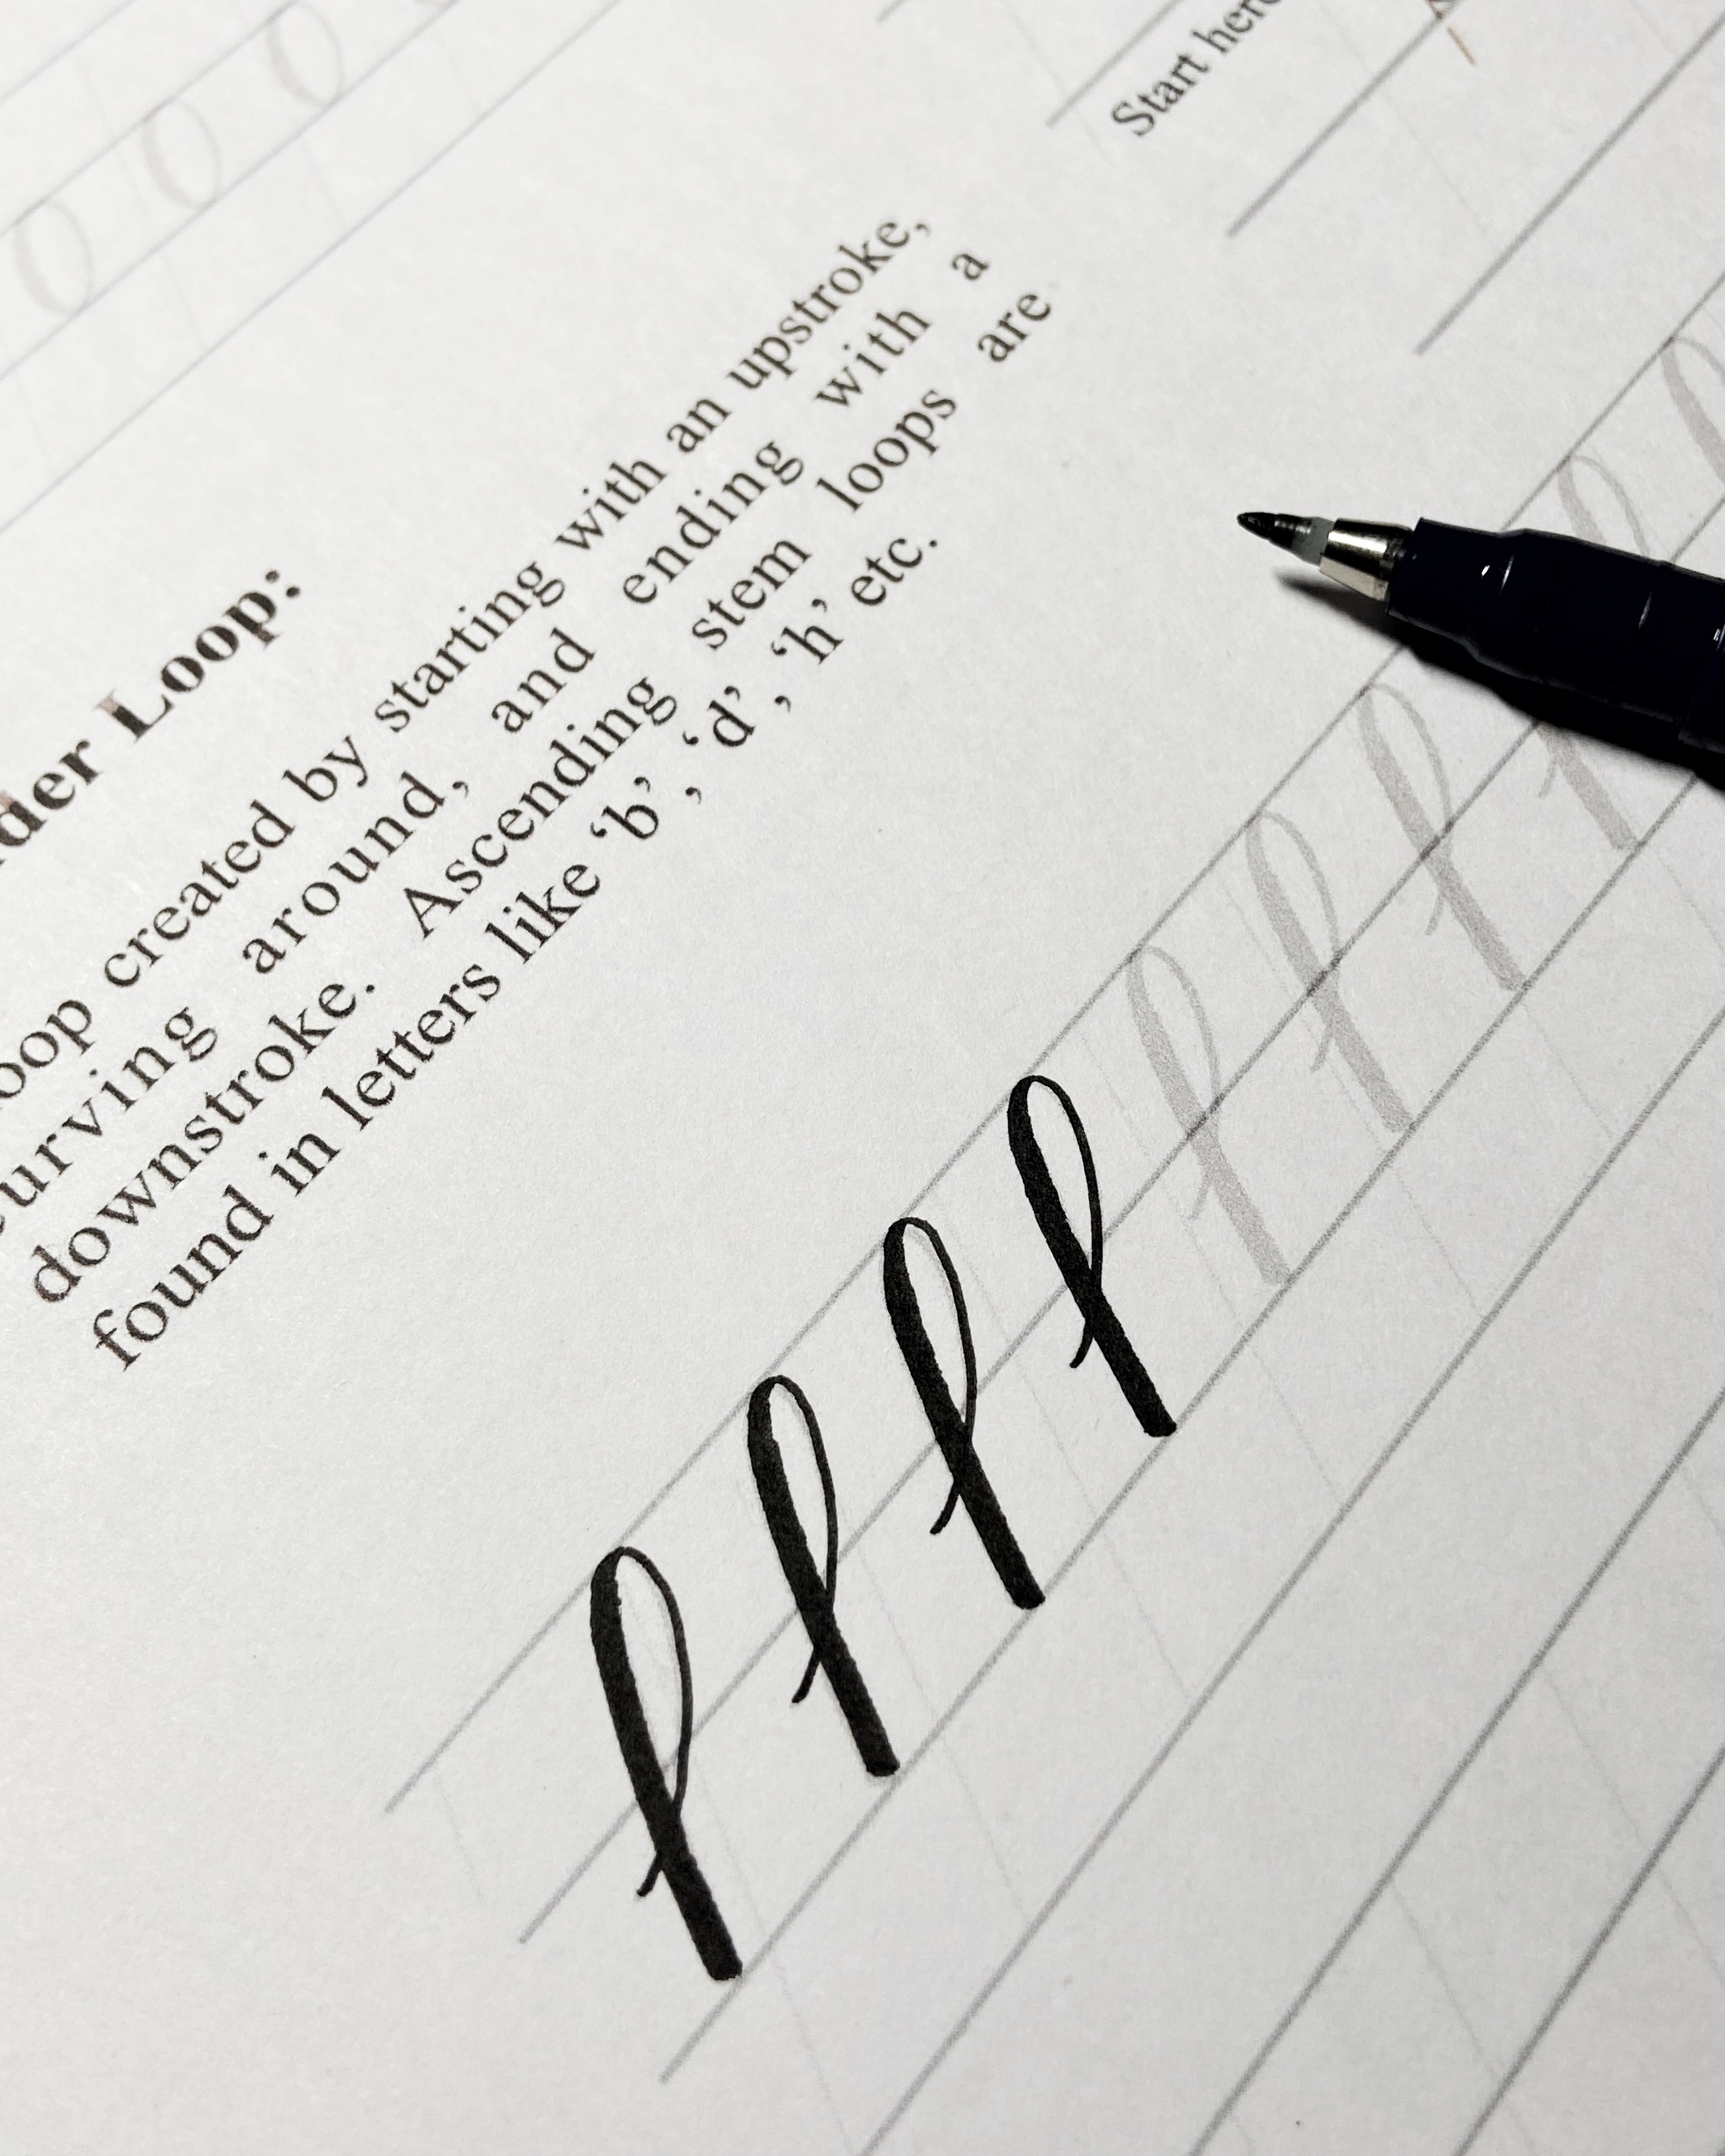 Start here
der Loop:
oop created by starting with an upstroke,
urving around, and ending with a
downstroke. Ascending stem loops are
found in letters like ‘b’, ‘d’, ‘h’ etc.